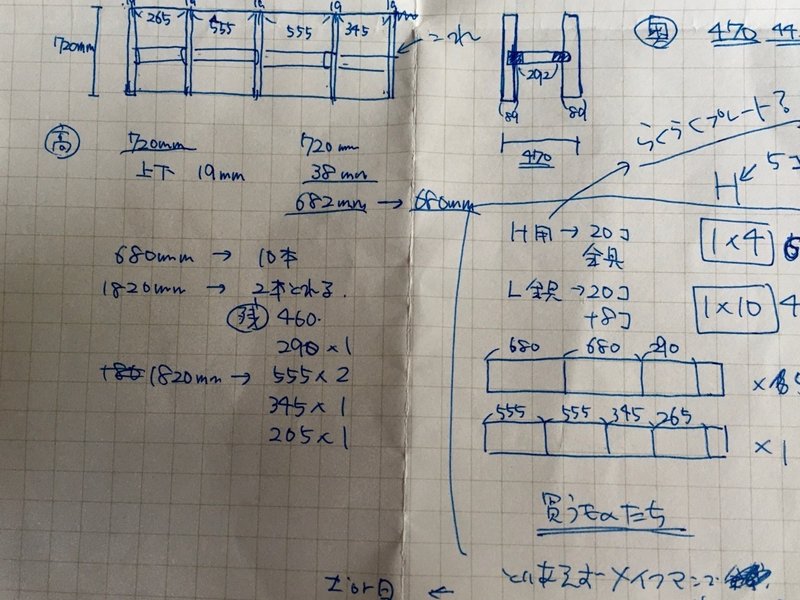 19 19 19 19
265 555 555 345
720mm
これ
292
89 89
470
奥 470 44
らくらくプレート?
高 720mm
上下 19mm
720mm
38mm
682mm → 680mm
680mm → 10本
1820mm → 2本とれる.
残 460.
290 × 1
1820mm → 555 × 2
345 × 1
205 × 1
H 5コ
H用 → 20コ
金具
1×4 6
L金具 → 20コ
+8コ
1×10 4
680 680 290
×5
555 555 345 265
×1
買うものたち
とりあえずメイクマンで